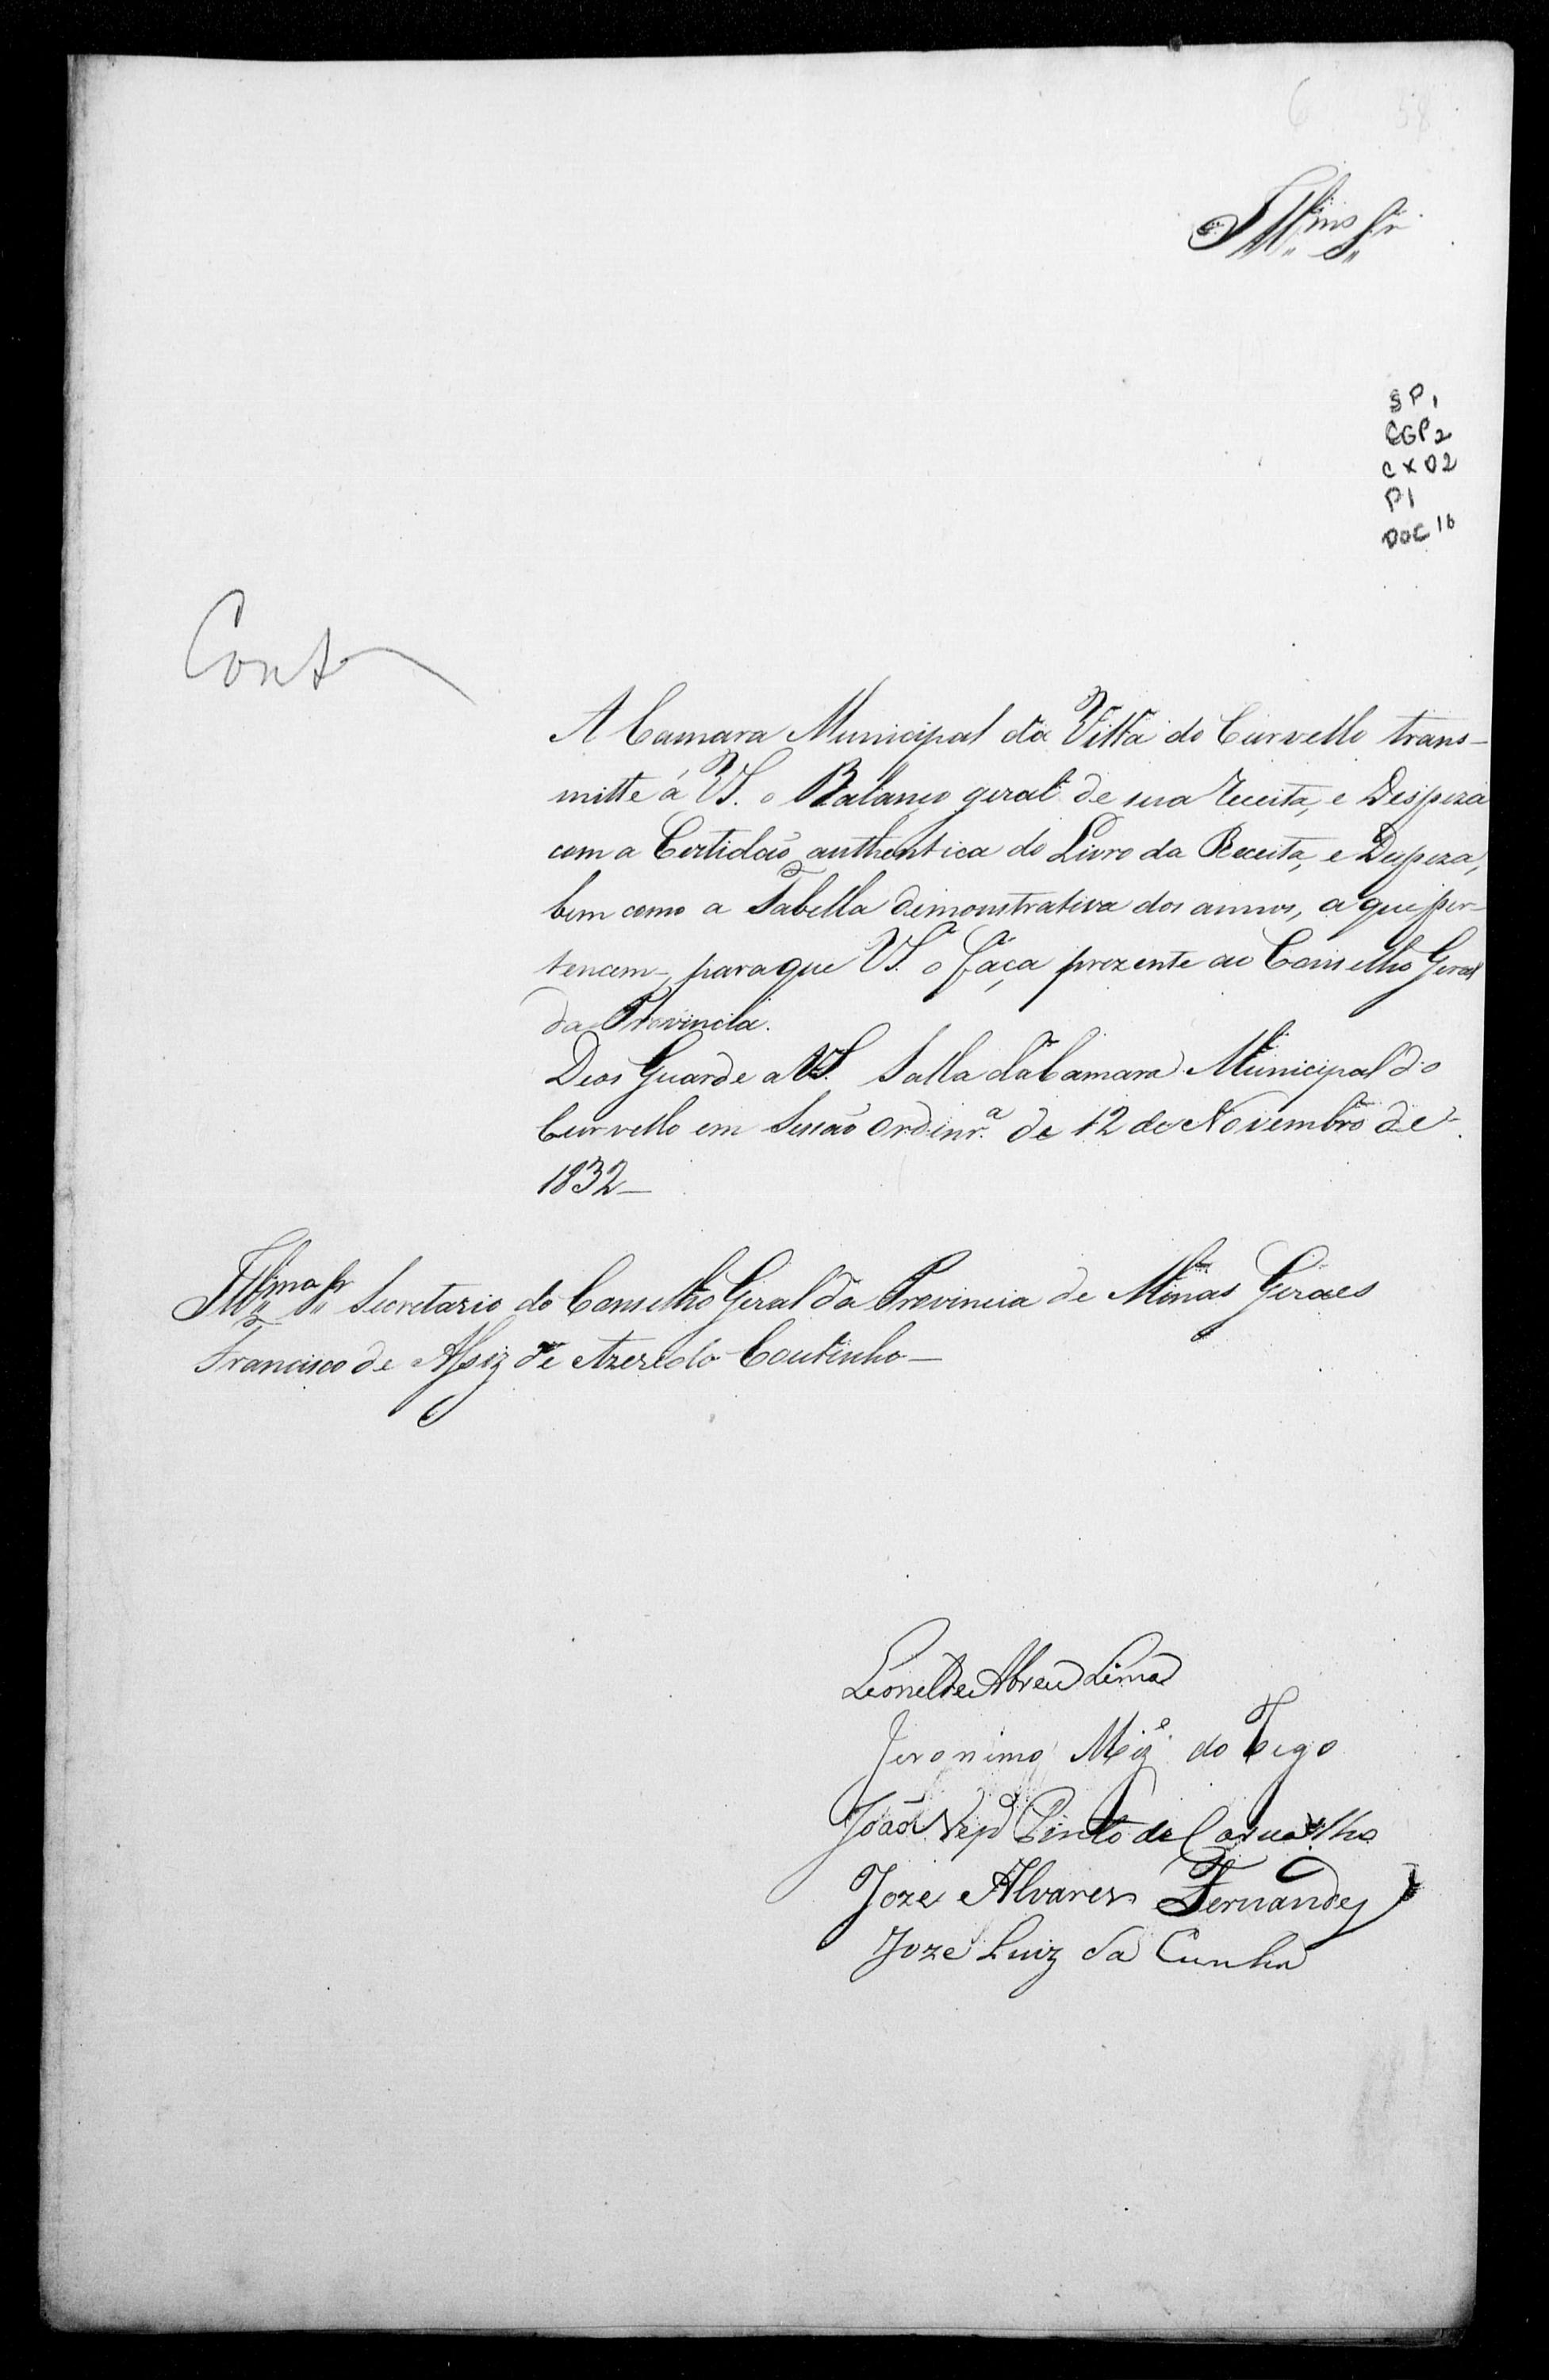 6 58
Illmo Sr
SP1
CGP2
CX02
P1
DOC 16
Cont
A Camara Municipal da Villa do Curvello trans-
mitte á VS. o Balanço geral de sua receita, e Despeza
com a Certidaõ authentica do Livro da Receita, e Despeza,
bem como a Tabella demonstrativa dos annos, a que per-
tencem, para que VS. o faça prezente ao Conselho Geral
da Provincia.
Deos Guarde a VS. Salla da Camara Municipal do
Curvello em Sessaõ Ordinr.ª de 12 de Novembro de
1832-
Illmo Sr Secretario do Conselho Geral da Provincia de Minas Geraes
Francisco de Assiz de Azeredo Coutinho-
Leonel de Abreu Lima
Jeronimo do
João Nep Pinto de Carvalho
Joze Alvares Fernandes
Joze Luiz da Cunha